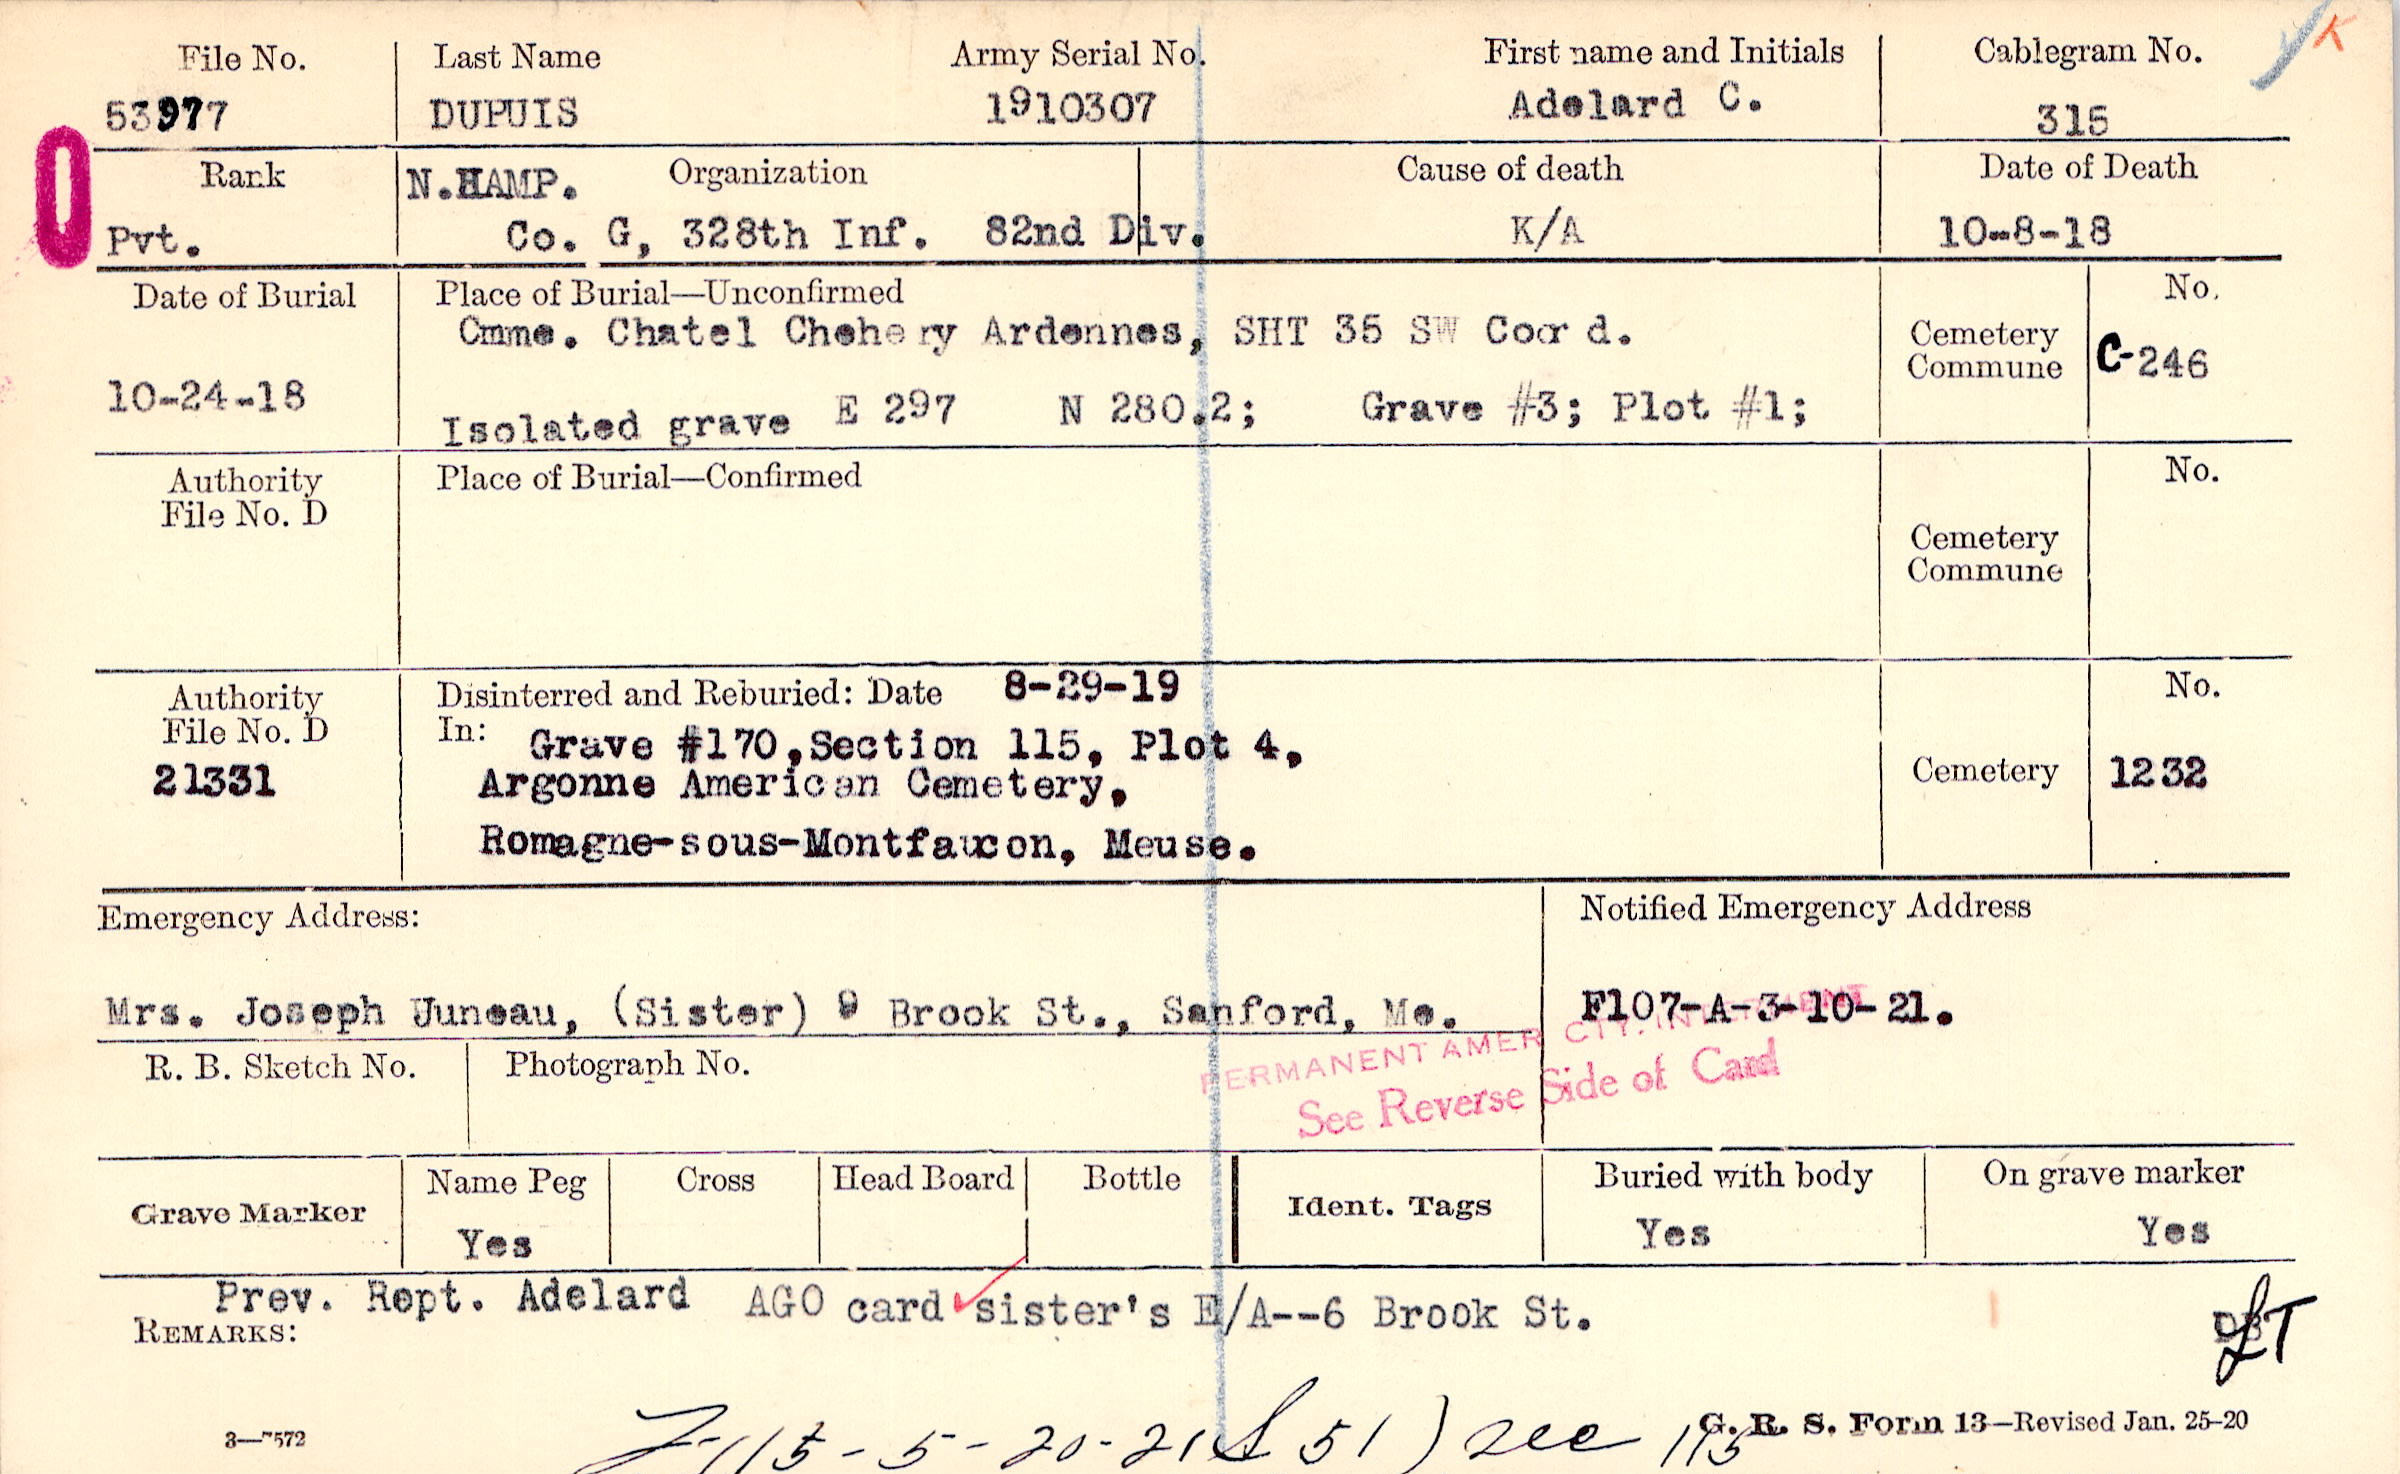 File No. Last Name Army Serial No. First name and Initials Cablegram No.
53977 DUPUIS 1910307 Adelard C. 315
Rank N.HAMP. Organization Cause of death Date of Death
Pvt. Co. G, 328th Inf. 82nd Div. K/A 10-8-18
Date of Burial Place of Burial—Unconfirmed No.
Cmme. Chatel Chehery Ardennes, SHT 35 SW Coord.
Cemetery
Commune C-246
10-24-18 Isolated grave E 297 N 280.2; Grave #3; Plot #1;
Authority Place of Burial—Confirmed No.
File No. D
Cemetery
Commune
Authority Disinterred and Reburied: Date 8-29-19 No.
File No. D In: Grave #170, Section 115, Plot 4,
21331 Argonne American Cemetery, Cemetery 1232
Romagne-sous-Montfaucon, Meuse.
Emergency Address: Notified Emergency Address
Mrs. Joseph Juneau, (Sister) 9 Brook St., Sanford, Me. F107-A-3-10-21.
PERMANENT AMER CTY. INTERMENT
See Reverse Side of Card
R. B. Sketch No. Photograph No.
Grave Marker Name Peg Cross Head Board Bottle Ident. Tags Buried with body On grave marker
Yes Yes Yes
Prev. Rept. Adelard AGO card sister's E/A--6 Brook St.
REMARKS:
LT
5-20-21 51) see 115
3—7572 G. R. S. Form 13—Revised Jan. 25-20